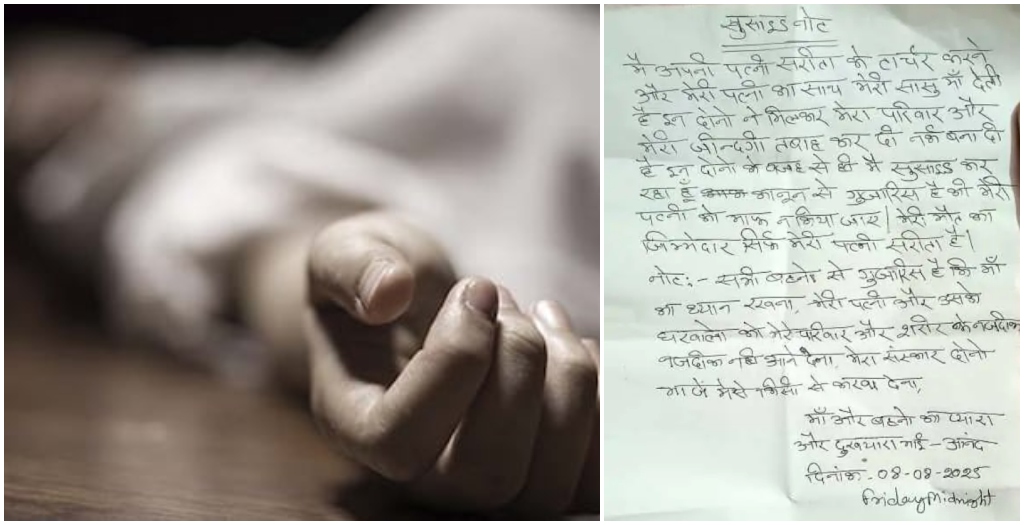 सुसाइड नोट
मै अपनी पत्नी सरीता के टार्चर करने
और मेरी पत्नी का साथ मेरी सासु माँ देती
है इन दोनो ने मिलकर मेरा परिवार और
मेरी जीन्दगी तबाह कर दी नर्क बना दी
है इन दोनो के वजह से ही मै सुसाइड कर
रहा हूँ कानून से गुजारिस है की मेरी
पत्नी को माफ न किया जाए। मेरी मौत का
जिम्मेदार सिर्फ मेरी पत्नी सरीता है।
नोट:- सभी बहनो से गुजारिस है कि माँ
का ध्यान रखना, मेरी पत्नी और उसके
घरवालो को मेरे परिवार और शरीर के नजदीक
नजदीक नही आने देना, मेरा संस्कार दोनो
से करवा देना,
माँ और बहनो का प्यारा
और दुखयारा भाई - आनंद
दिनांक:- 08-08-2025
Friday Midnight